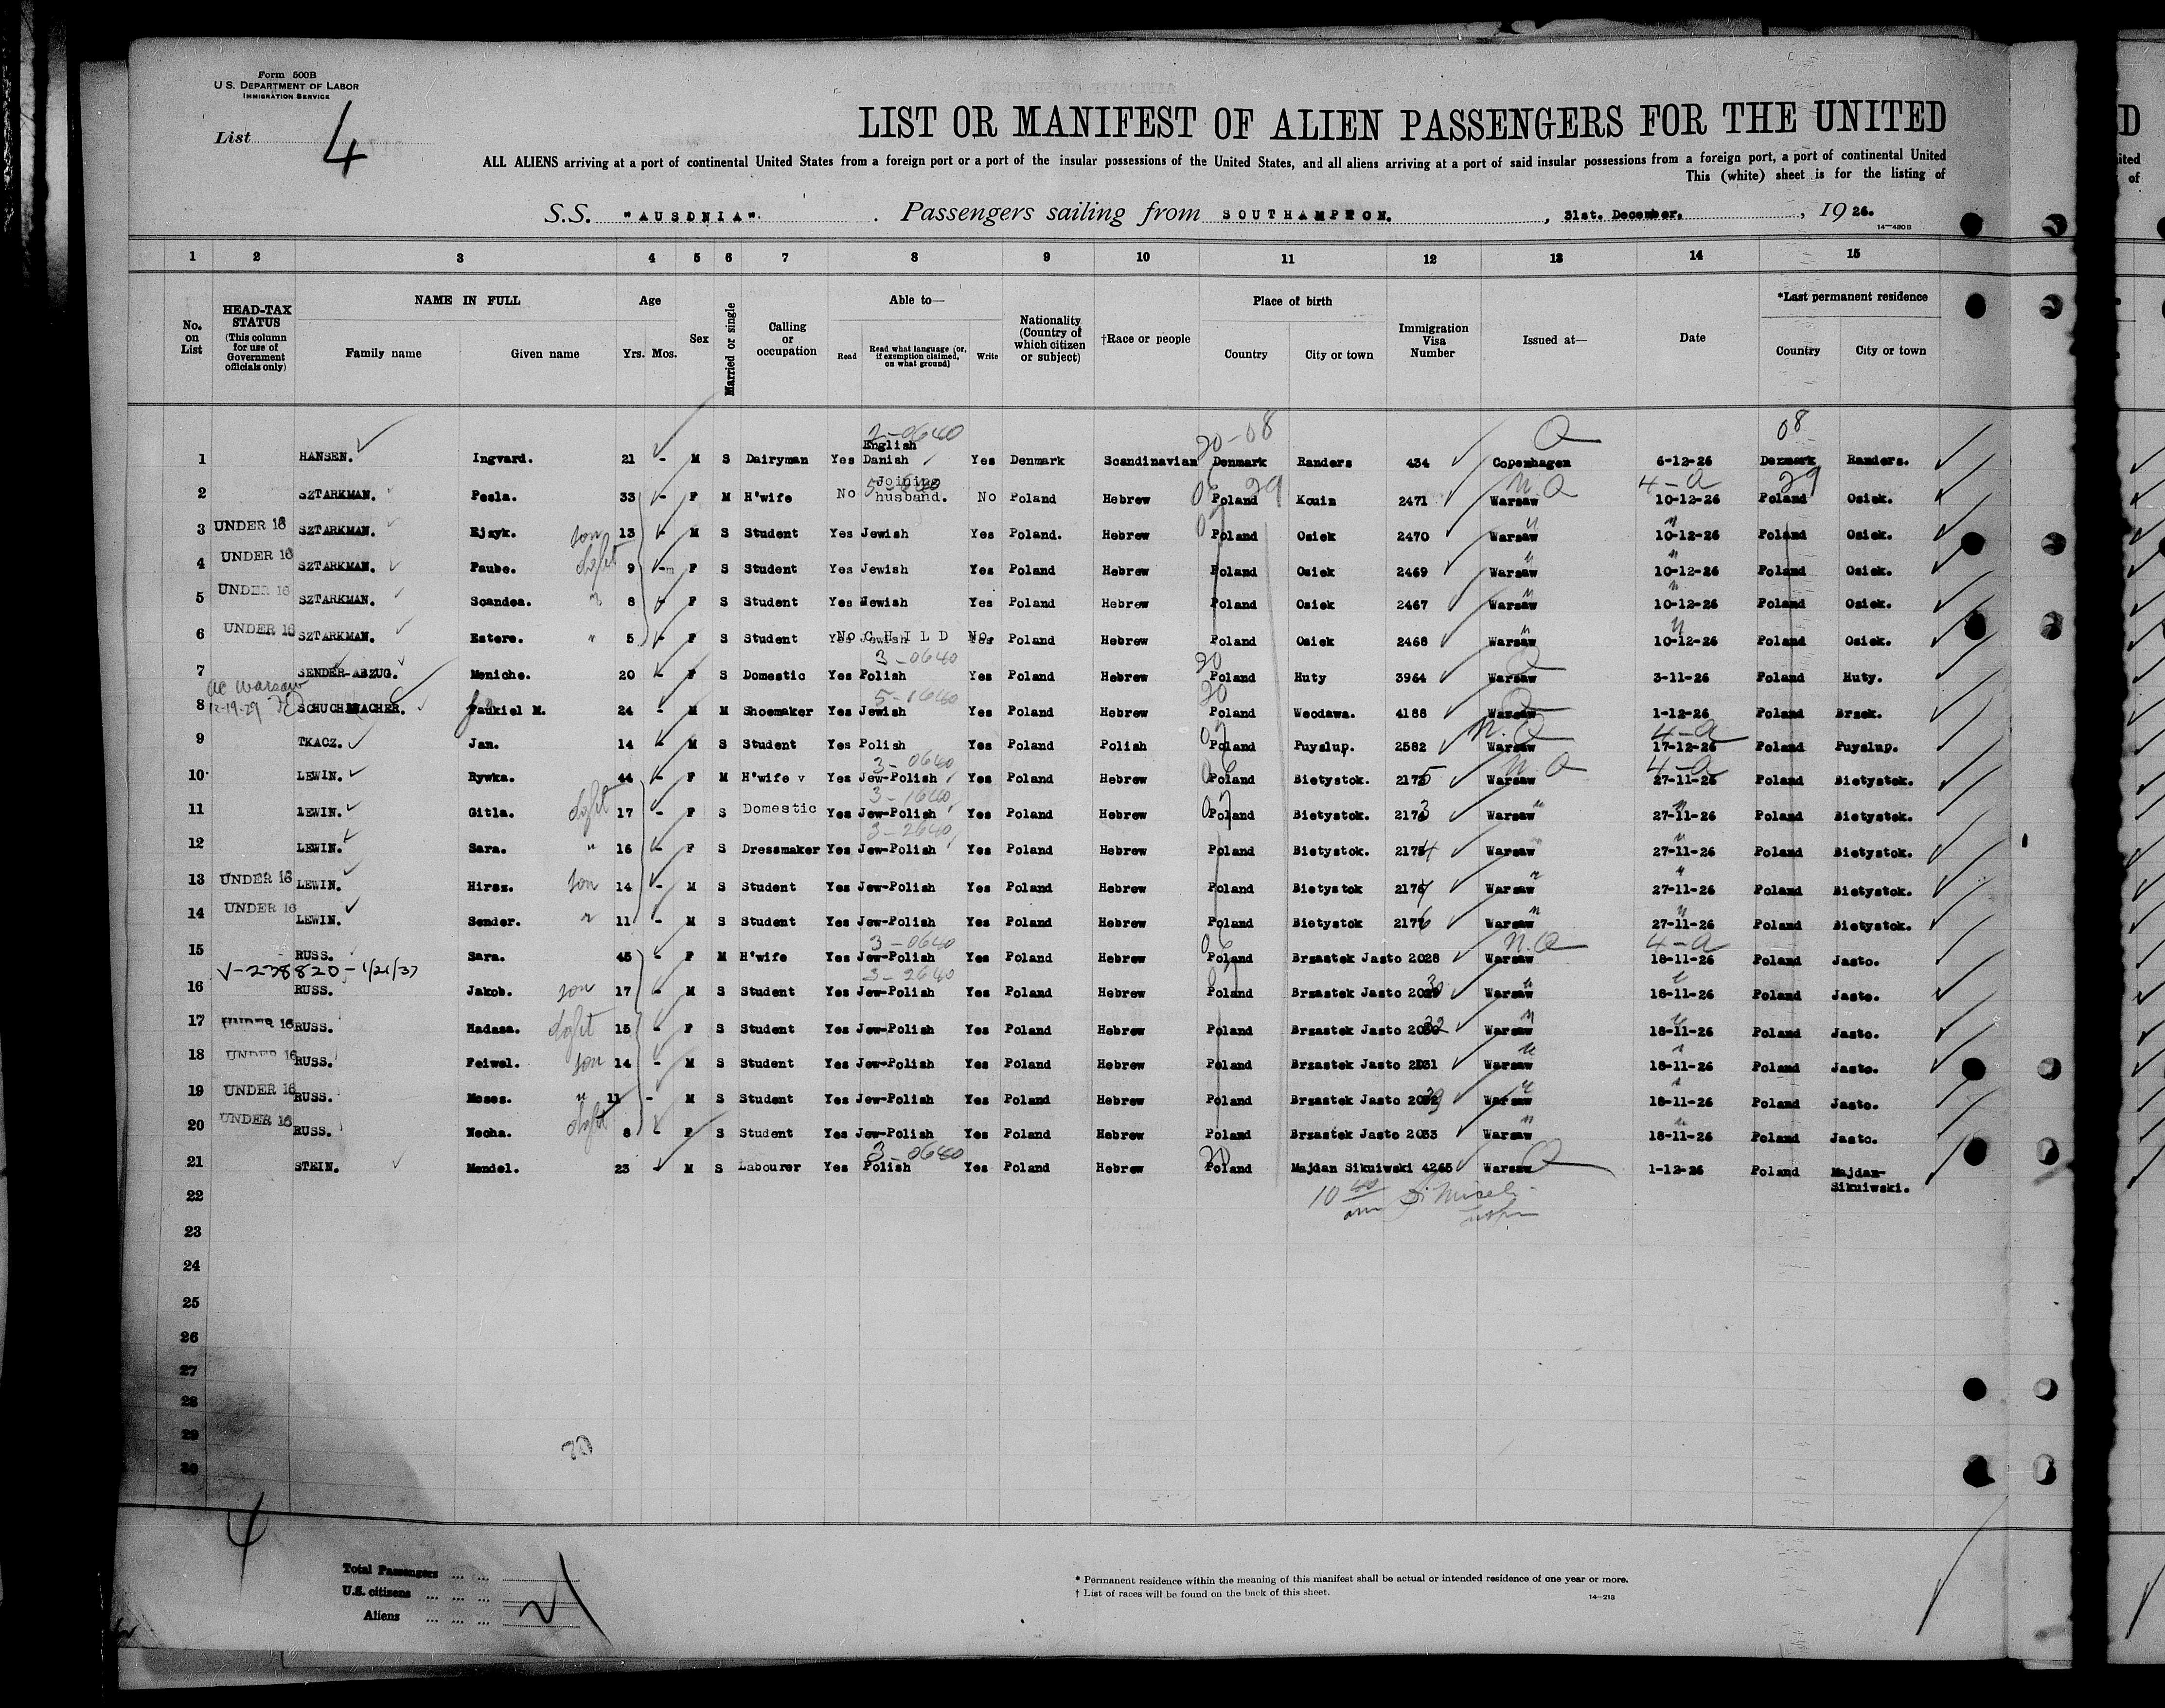 Form 500B
U.S. DEPARTMENT OF LABOR
IMMIGRATION SERVICE
List 4
LIST OR MANIFEST OF ALIEN PASSENGERS FOR THE UNITED
ALL ALIENS arriving at a port of continental United States from a foreign port or a port of the insular possessions of the United States, and all aliens arriving at a port of said insular possessions from a foreign port, a port of continental United
This (white) sheet is for the listing of
S.S. "AUSONIA". Passengers sailing from SOUTHAMPTON., 31st. December., 19 26.
14—430 B
1 2 3 4 5 6 7 8 9 10 11 12 13 14 15
No. on List
HEAD-TAX STATUS (This column for use of Government officials only)
NAME IN FULL Family name Given name
Age Yrs. Mos.
Sex
Married or single
Calling or occupation
Able to— Read Read what language (or, if exemption claimed, on what ground) Write
Nationality (Country of which citizen or subject)
†Race or people
Place of birth Country City or town
Immigration Visa Number
Issued at—
Date
*Last permanent residence Country City or town
2-0640 20-08 08
1 HANSEN. Ingvard. 21 - M S Dairyman Yes English Danish Yes Denmark Scandinavian Denmark Randers 434 Copenhagen 6-12-26 Denmark Randers.
2 SZTARKMAN. Pesla. 33 - F M H'wife No Joining husband. No Poland Hebrew Poland Kouin 2471 Warsaw 10-12-26 Poland Osiek.
3 UNDER 16 SZTARKMAN. Rjzyk. son 13 - M S Student Yes Jewish Yes Poland. Hebrew Poland Osiek 2470 Warsaw 10-12-26 Poland Osiek.
4 UNDER 16 SZTARKMAN. Faube. 9 - F S Student Yes Jewish Yes Poland Hebrew Poland Osiek 2469 Warsaw 10-12-26 Poland Osiek.
5 UNDER 16 SZTARKMAN. Scandea. 8 - F S Student Yes Jewish Yes Poland Hebrew Poland Osiek 2467 Warsaw 10-12-26 Poland Osiek.
6 UNDER 16 SZTARKMAN. Estere. " 5 - F S Student No CHILD No. Poland Hebrew Poland Osiek 2468 Warsaw 10-12-26 Poland Osiek.
3-0640 20
7 SENDER-ABZUG. Meniche. 20 - F S Domestic Yes Polish Yes Poland Hebrew Poland Huty 3964 Warsaw 3-11-26 Poland Huty.
Warsaw 5-1640 20
12-19-29
8 SCHUCHMACHER. Jaukiel M. 24 - M M Shoemaker Yes Jewish Yes Poland Hebrew Poland Weodawa. 4188 Warsaw 1-12-26 Poland Brsek.
9 TKACZ. Jan. 14 - M S Student Yes Polish Yes Poland Polish Poland Puyslup. 2582 Warsaw 17-12-26 Poland Puyslup.
3-0640
10 LEWIN. Rywka. 44 - F M H'wife v Yes Jew-Polish Yes Poland Hebrew Poland Bietystok. 2175 Warsaw 27-11-26 Poland Bietystok.
3-1640
11 LEWIN. Gitla. 17 - F S Domestic Yes Jew-Polish Yes Poland Hebrew Poland Bietystok. 2173 Warsaw 27-11-26 Poland Bietystok.
3-2640
12 LEWIN. Sara. " 16 - F S Dressmaker Yes Jew-Polish Yes Poland Hebrew Poland Bietystok. 2174 Warsaw 27-11-26 Poland Bietystok.
13 UNDER 16 LEWIN. Hirsz. son 14 - M S Student Yes Jew-Polish Yes Poland Hebrew Poland Bietystok 2177 Warsaw 27-11-26 Poland Bietystok.
14 UNDER 16 LEWIN. Sender. " 11 - M S Student Yes Jew-Polish Yes Poland Hebrew Poland Bietystok 2176 Warsaw 27-11-26 Poland Bietystok.
3-0640 N.Q 4-a
15 RUSS. Sara. 45 - F M H'wife Yes Jew-Polish Yes Poland Hebrew Poland Brzastek Jasto 2028 Warsaw 18-11-26 Poland Jasto.
V-228820-1/21/37 3-2640
16 RUSS. Jakob. son 17 - M S Student Yes Jew-Polish Yes Poland Hebrew Poland Brzastek Jasto Warsaw 18-11-26 Poland Jasto.
17 UNDER 16 RUSS. Hadasa. 15 - F S Student Yes Jew-Polish Yes Poland Hebrew Poland Brzastek Jasto Warsaw 18-11-26 Poland Jasto.
18 UNDER 16 RUSS. Feiwel. son 14 - M S Student Yes Jew-Polish Yes Poland Hebrew Poland Brzastek Jasto 2031 Warsaw 18-11-26 Poland Jasto.
19 UNDER 16 RUSS. Moses. " 11 - M S Student Yes Jew-Polish Yes Poland Hebrew Poland Brzastek Jasto Warsaw 18-11-26 Poland Jasto.
20 UNDER 16 RUSS. Necha. 8 - F S Student Yes Jew-Polish Yes Poland Hebrew Poland Brzastek Jasto 2033 Warsaw 18-11-26 Poland Jasto.
3-0640 20
21 STEIN. Mendel. 23 - M S Labourer Yes Polish Yes Poland Hebrew Poland Majdan Sikuiwski 4265 Warsaw 1-12-26 Poland Majdan-Sikuiwski.
22
23
24
25
26
27
28
29
30
20
4
Total Passengers ... ...
U.S. citizens ... ... ...
Aliens ... ... ... 21
* Permanent residence within the meaning of this manifest shall be actual or intended residence of one year or more.
† List of races will be found on the back of this sheet.
14—213